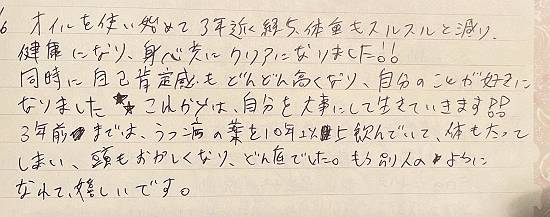 オイルを使い始めて3年近く経ち、体重もスルスルと減り、
健康になり、身心共にクリアになりました!!
同時に自己肯定感もどんどん高くなり、自分のことが好きに
なりました★★ これからは、自分を大事にして生きていきます!!
3年前までは、うつ病の薬を10年以上飲んでいて、体も太って
しまい、頭もおかしくなり、どん底でした。もう別人のように
なれて、嬉しいです。